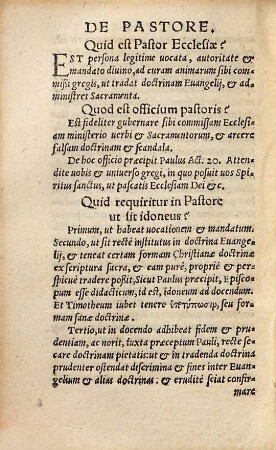 DE PASTORE.
Quid est Pastor Ecclesiæ?
EST persona legitime uocata, autoritate &
mandato diuino, ad curam animarum sibi com-
missi gregis, ut tradat doctrinam Euangelij, & ad-
ministret Sacramenta.
Quod est officium pastoris?
Est fideliter gubernare sibi commissam Ecclesi-
am ministerio uerbi & Sacramentorum, & arcere
falsam doctrinam & scandala.
De hoc officio præcipit Paulus Act. 20. Atten-
dite uobis & uniuerso gregi, in quo posuit uos Spi-
ritus sanctus, ut pascatis Ecclesiam Dei &c.
Quid requiritur in Pastore
ut sit idoneus?
Primum, ut habeat uocationem & mandatum.
Secundo, ut sit rectè institutus in doctrina Euange-
lij, & teneat certam formam Christianæ doctrinæ
ex scriptura sacra, & eam purè, propriè & per-
spicuè tradere possit. Sicut Paulus præcipit, Episco-
pum esse didacticum, id est, idoneum ad docendum.
Et Timotheum iubet tenere ὑποτύπωσιν, seu for-
mam sanæ doctrinæ.
Tertio, ut in docendo adhibeat fidem & pru-
dentiam, ac norit, iuxta præceptum Pauli, recte se-
care doctrinam pietatis: ut & in tradenda doctrina
prudenter ostendat discrimina & fines inter Euan-
gelium & alias doctrinas: & erudite sciat confir-
mare